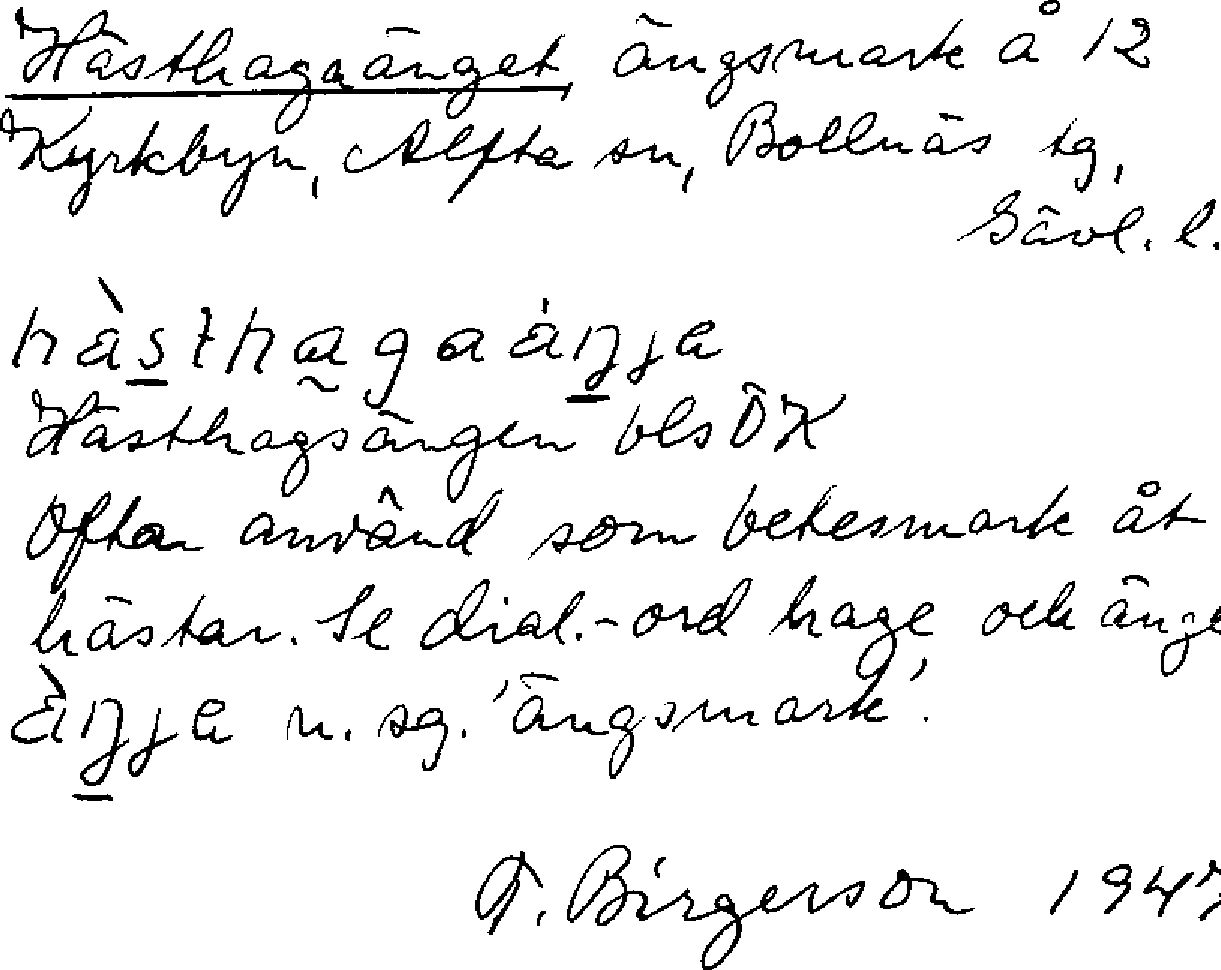 Hästhagaänget, ängsmark å 12
Kyrkbyn, Alfta sn, Bollnäs tg,
Gävl. l.
hàsthagaáŋja
Hästhagsängen bls ÖK
Ofta använd som betesmark åt
hästar. Se dial.-ord hage och änge
àŋja n. sg. 'ängsmark'.
F. Birgerson 1947